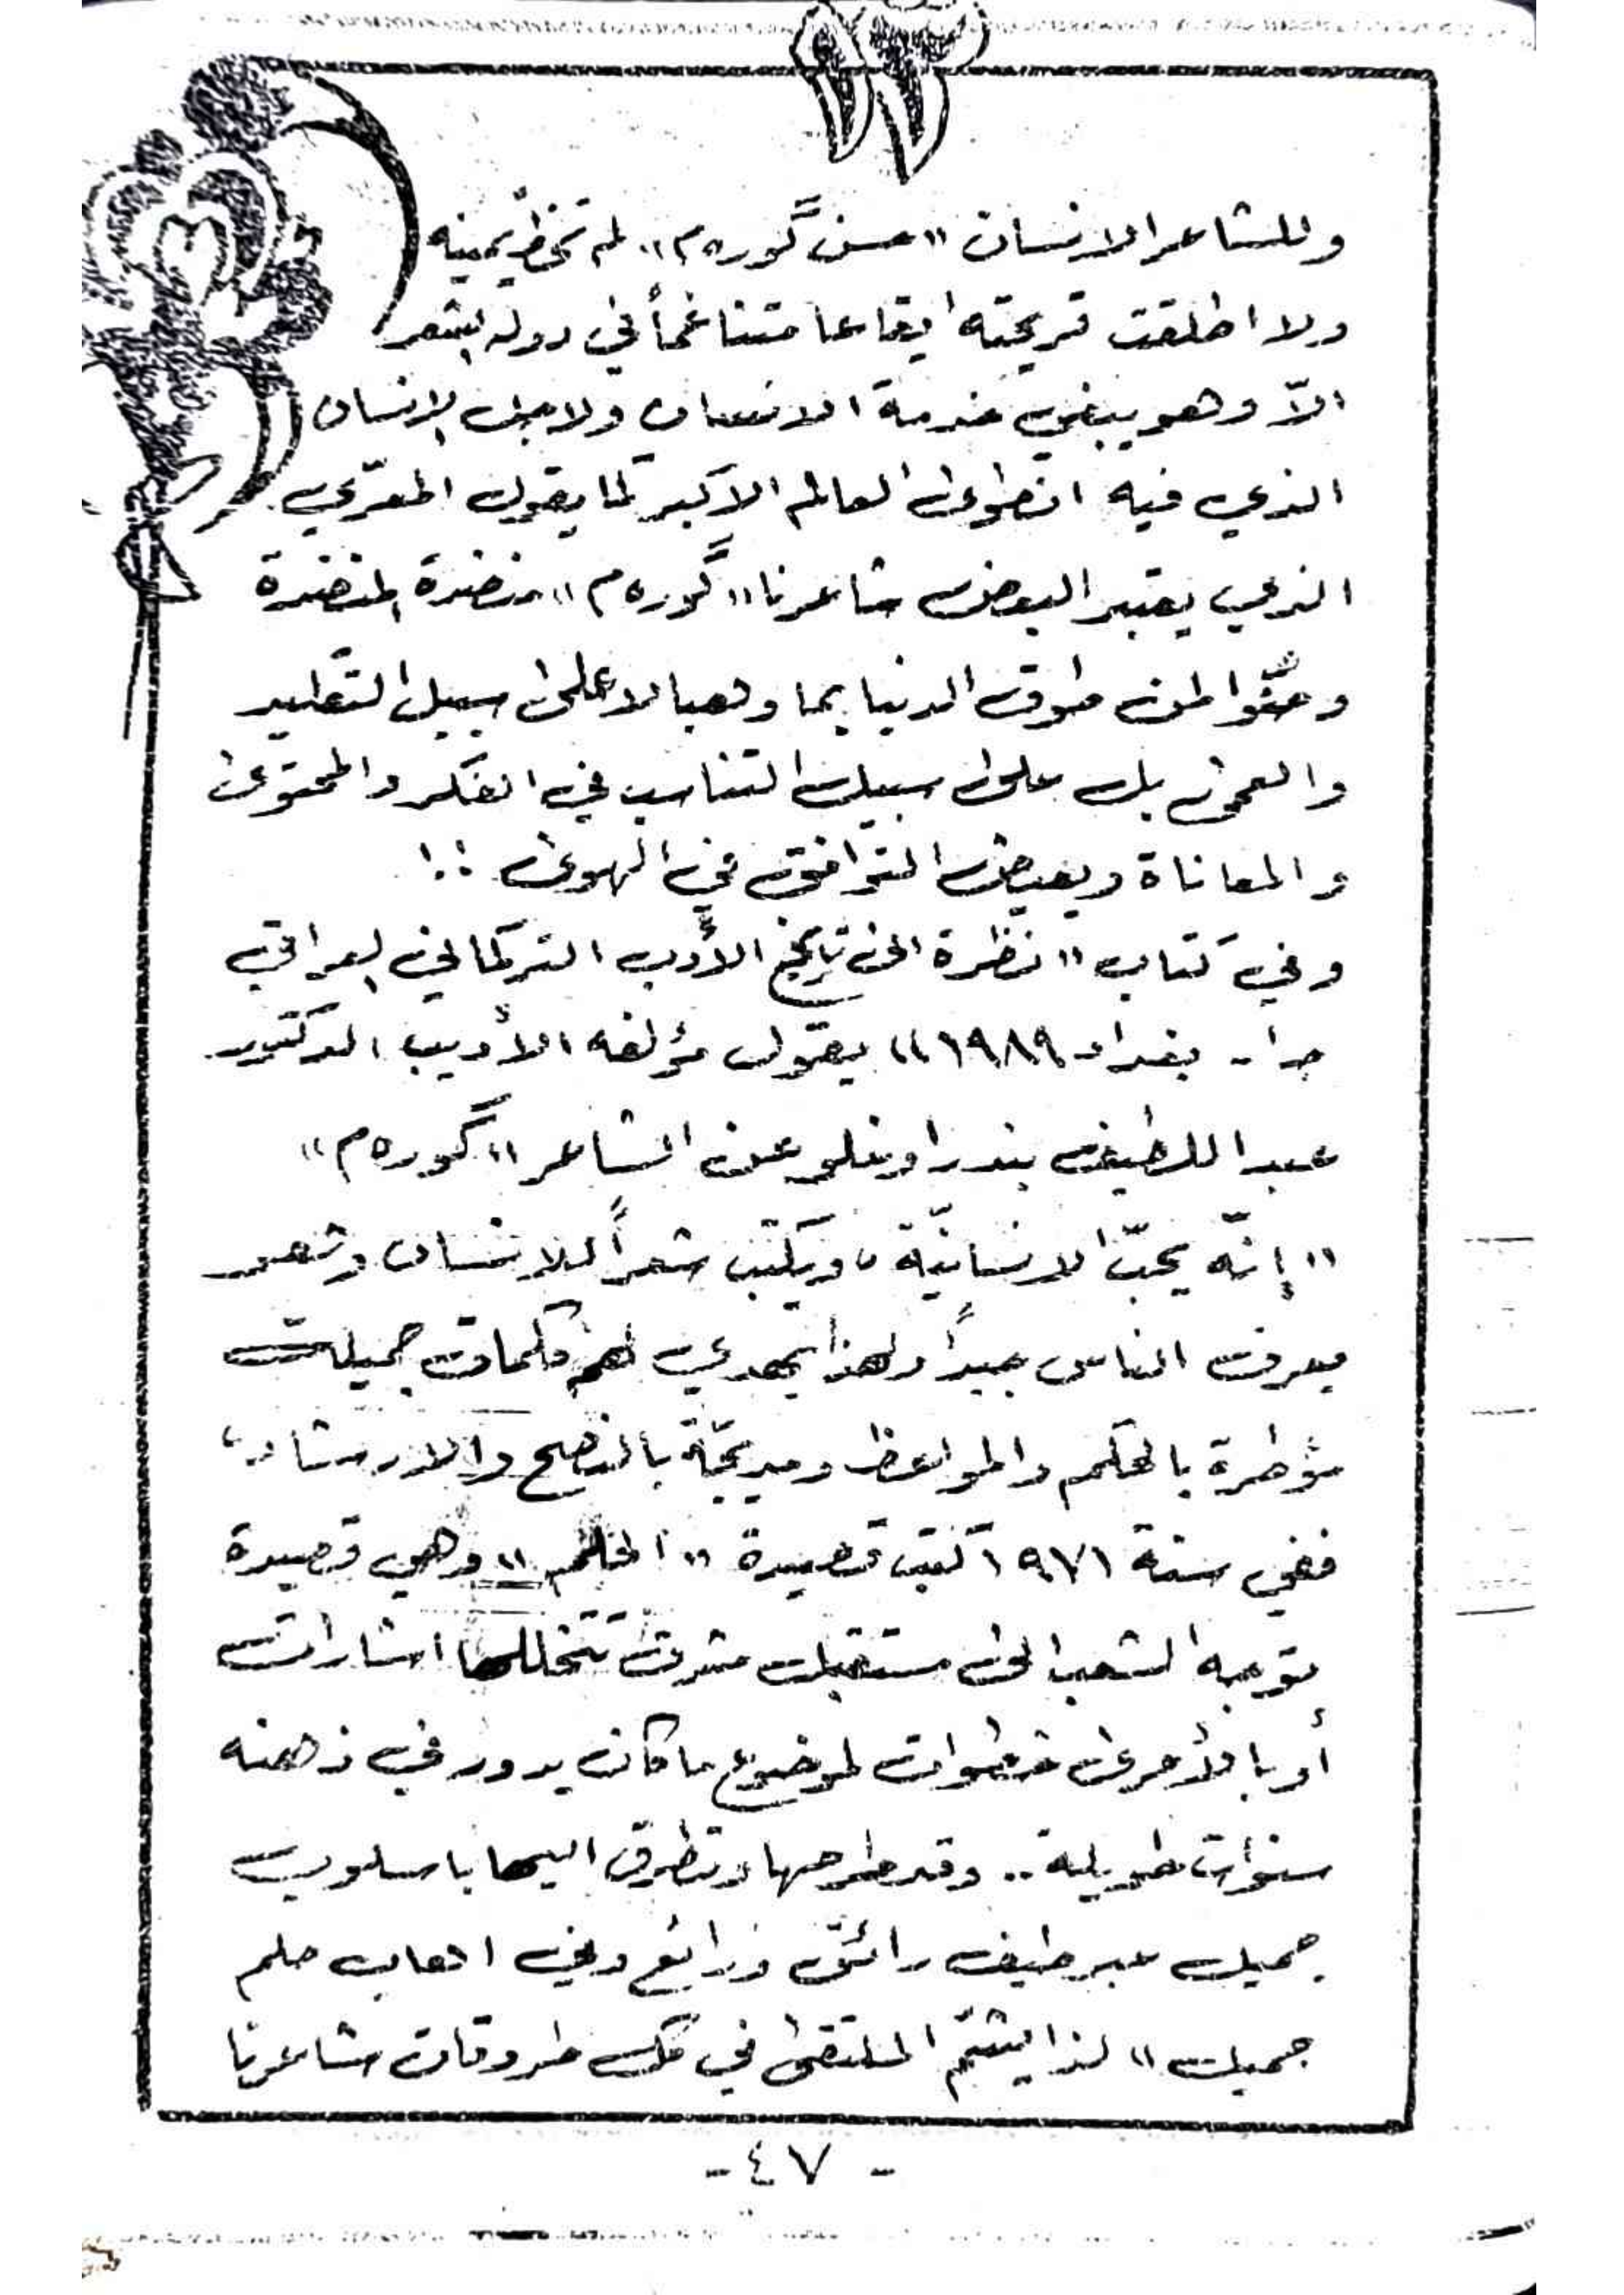 وللشاعر الانسان «حسن گوره م» لم تخطّ يمينه
ولا اطلقت قريحته ايقاعا متناغماً في دولة الشعر
الاّ وهو يبغي خدمة الانسان ولاجل الانسان
الذي فيه انطوى العالم الاكبر كما يقول المعرّي
الذي يعتبر البعض شاعرنا «گوره م» منضدة لمنضدة
الدنيا بما وهبا لا على سبيل التقليد
بل على سبيل التناسب في الفكر والمحتوى
والمعاناة وبعض التوافق في الهوى !!
وفي كتاب «نظرة الى تاريخ الأدب التركماني العراقي
جـ١ - بغداد ١٩٨٩» يقول مؤلفه الأديب الدكتور
عبد اللطيف بندر اوغلو عن الشاعر «گوره م»
«إنّه يحبّ الانسانيّة، ويكتب شعراً للانسان وشعر
يعرف الناس جيداً ولهذا يهدي لهم كلمات جميلة
مؤطرة بالحكم والمواعظ ومدبجة بالنصح والارشاد،
ففي سنة ١٩٧١ كتب قصيدة «الحلم» وهي قصيدة
توجه الشعب الى مستقبل مشرق تتخللها اشارات
أو بالأحرى خطوات لموضوع ما كان يدور في ذهنه
سنوات طويلة.. وقد طرحها وتطرق اليها باسلوب
جميل عبر طيف رائق ورائع وفي اهاب حلم
جميل» لذا يشمّ المتلقي في كل طروقات شاعرنا
- ٤٧ -